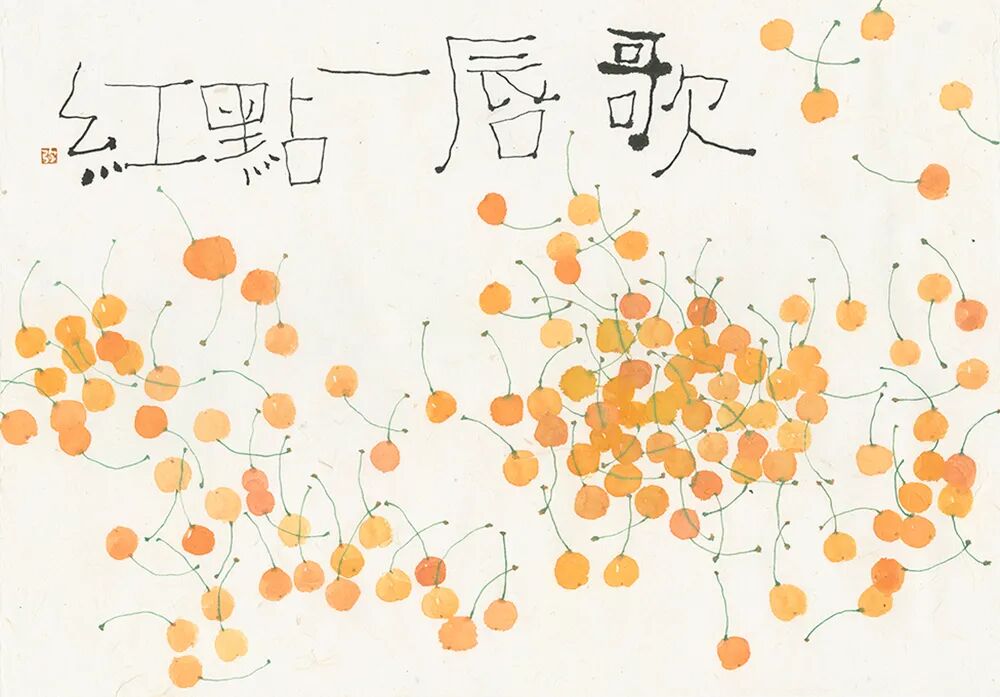 歌唇一點紅